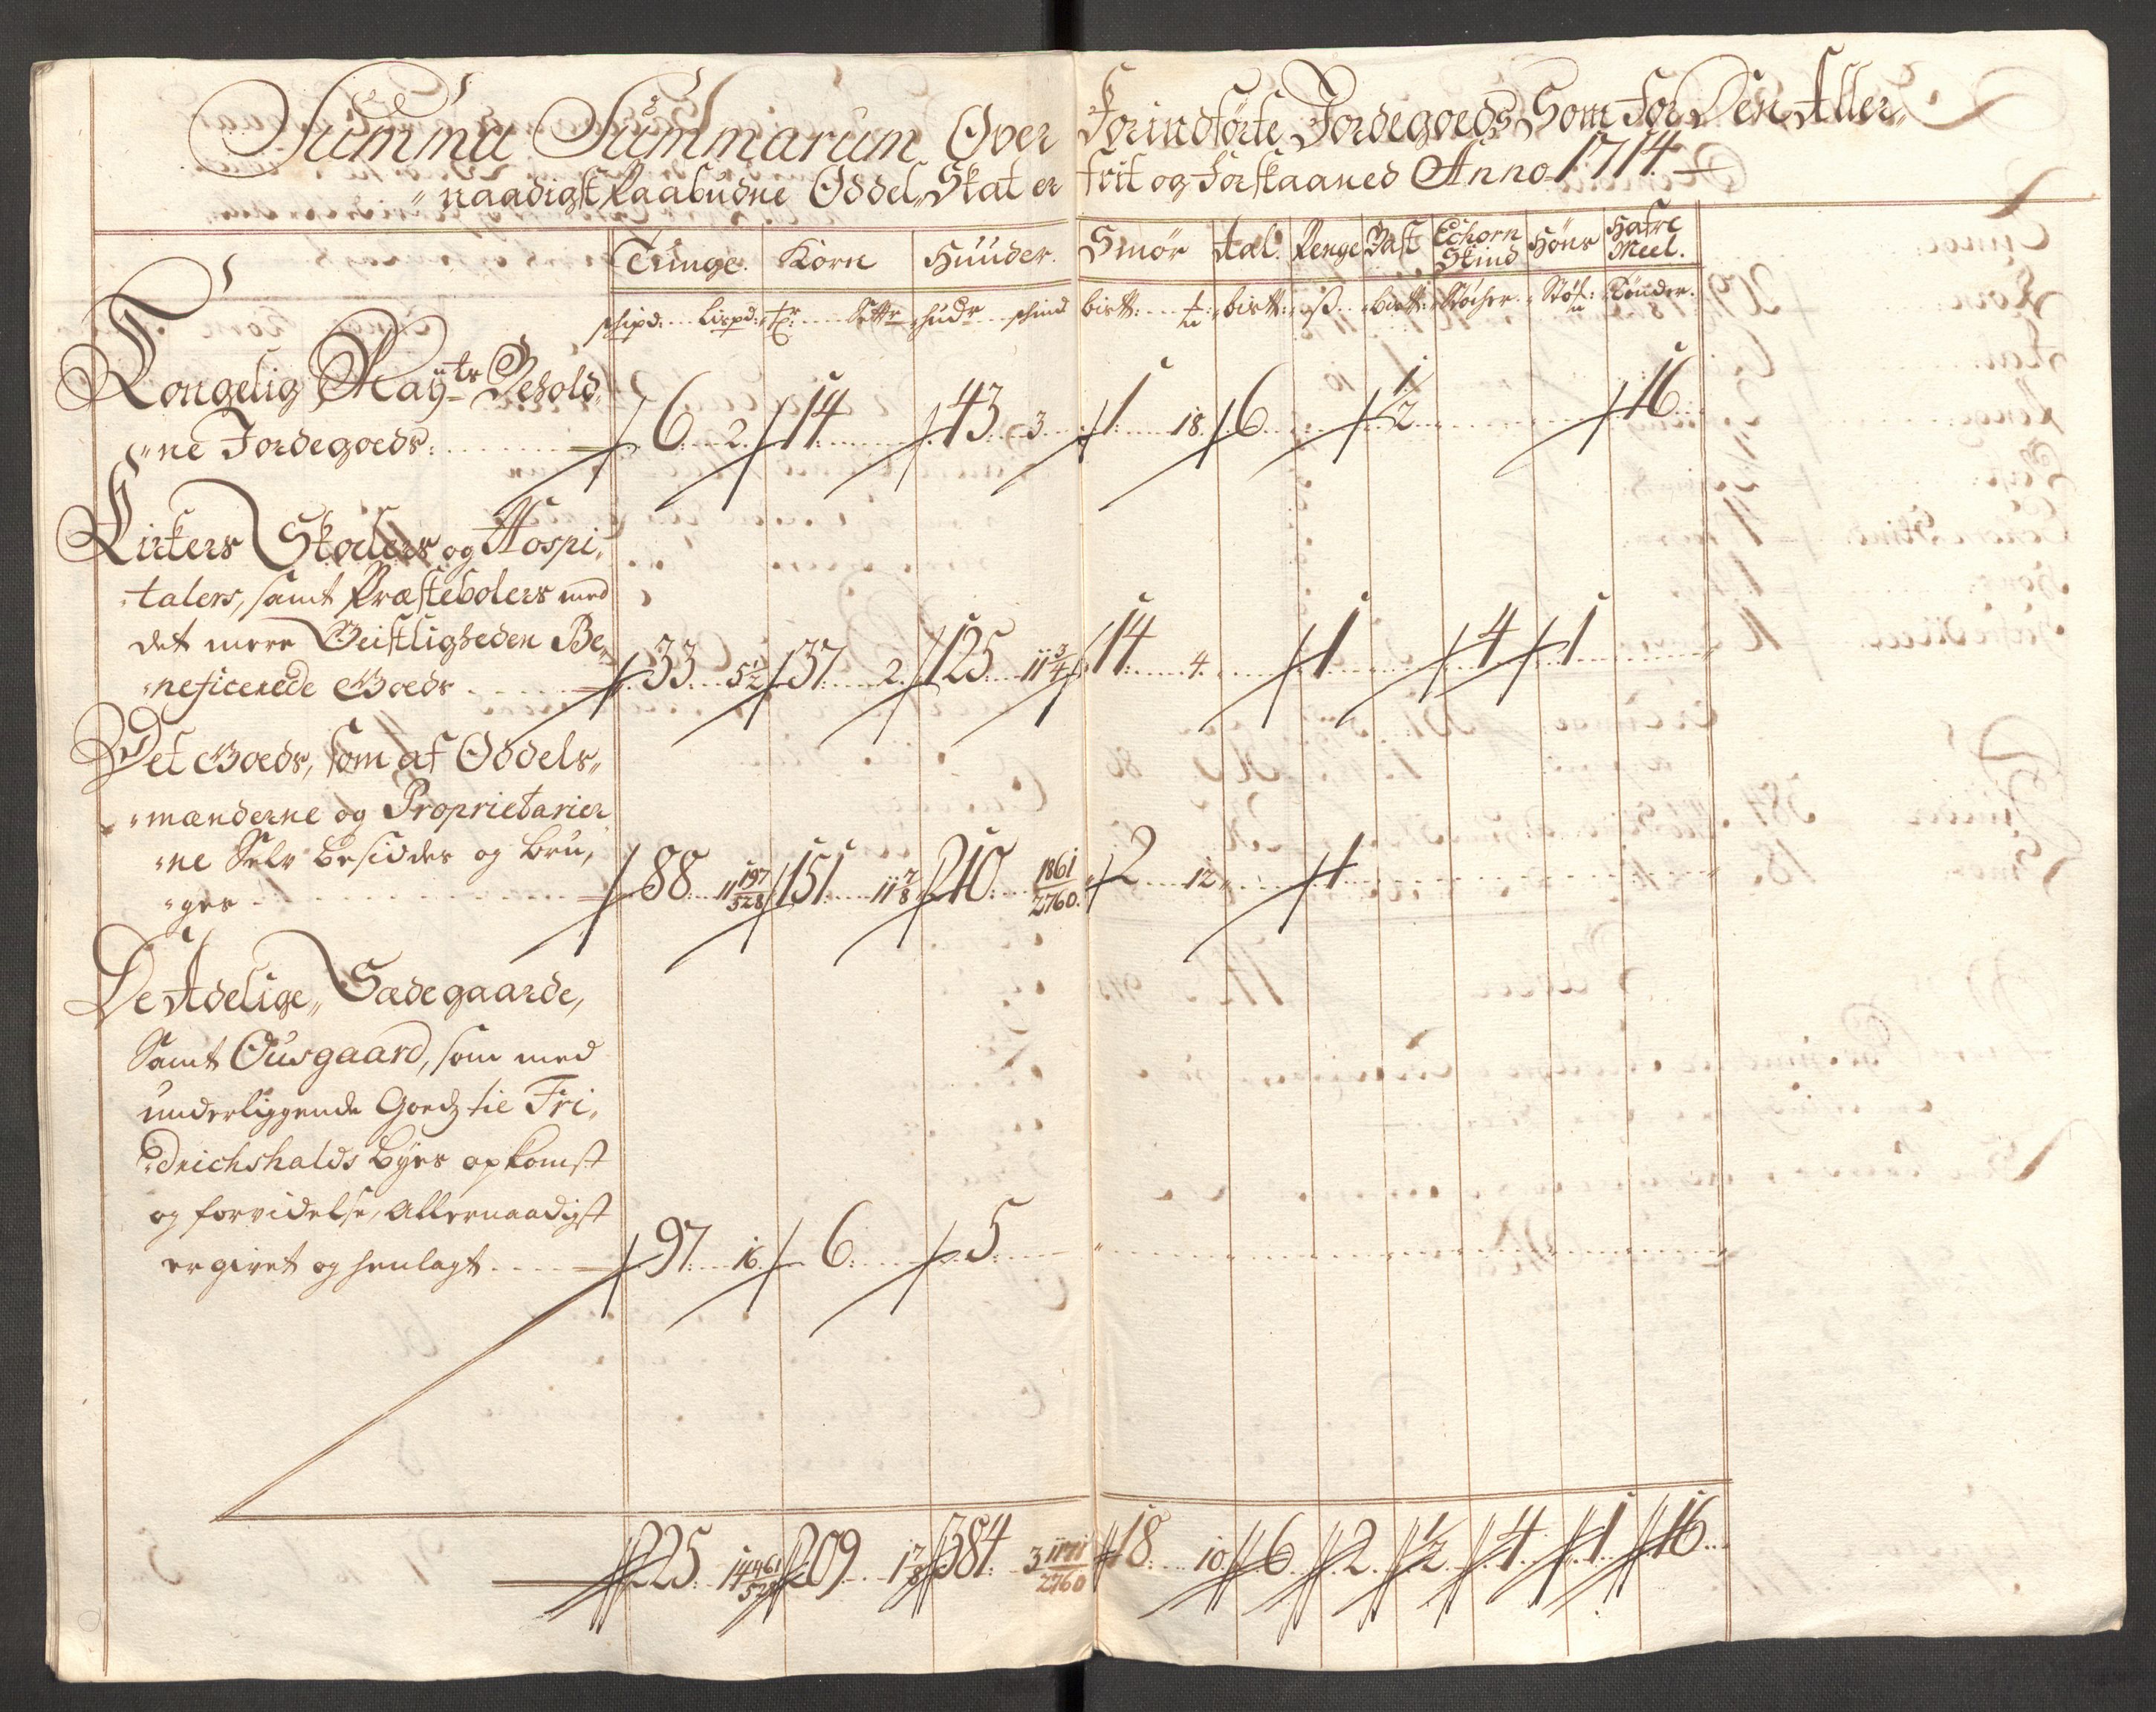 Summa Summarum Over Forindførte Jordegoeds Som For Den Aller„
„naadigst Paabudne Oddel„Skat er frit og Forskaaned Anno 1714
Tunge. Korn Huuder. Smør Aal. Penge Bast Echorn Skind Høns Hafre Meel.
schipd: Lispd: Tr: Settr hudr schind bistt: bistt: ß bistt: Tønder.
Kongelig Maÿts Behold„
„ne Jordegoeds: 6 2 14 43 3 1 18 6 1/2 16
Kirkers Skolers og Hospi„
„talers, samt Præstebolers med
det mere Geistligheden Be„
„neficerede Goeds 33 5 1/2 37 2 125 11 3/4 14 4 1 4 1
Det Goeds, som af Oddels„
„mænderne og Proprietarier
„ne Selv besiddes og bru„
„ges 88 11 197/528 151 11 7/8 210 1861/2760 2 12 1
De Adelige„ Sædegaarde,
Samt Ousgaard, som med
underliggende Goedz til Fri„
„drichshalds byes opkomst
og forvidelse, allernaadigst
er givet og henlagt 97 16 6 5
225 14 461/528 209 1 7/8 384 3 1171/2760 18 10 6 2 1/2 4 1 16